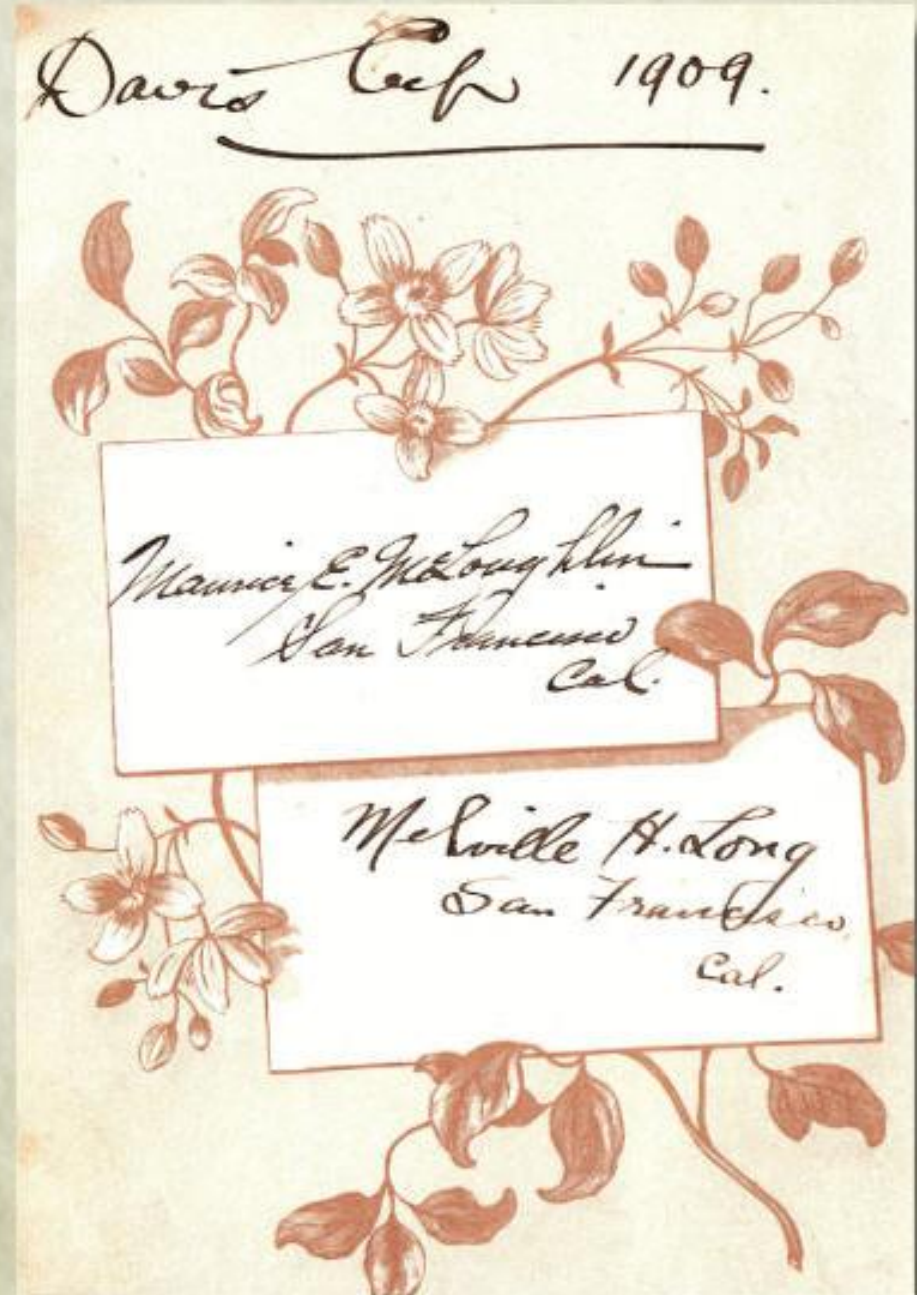 Davis Cup 1909.
Maurice E. McLoughlin
San Francisco
Cal.
Melville H. Long
San Francisco
Cal.